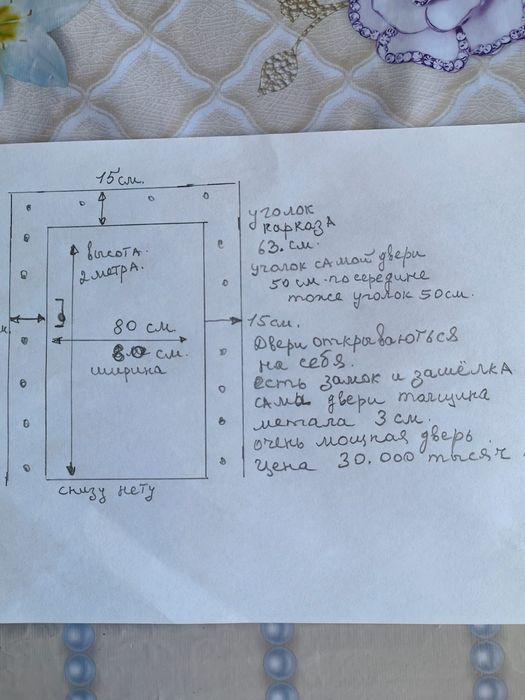 15 см.
высота.
2 метра.
80 см.
80 см.
ширина
снизу нету
уголок
карказа
63. см.
уголок самой двери
50 см. по середине
тоже уголок 50 см.
15 см.
Двери открываються
на себя.
есть замок и зашёлка
сама двери толщина
метала 3 см.
очень мощная дверь.
Цена 30.000 тысяч.